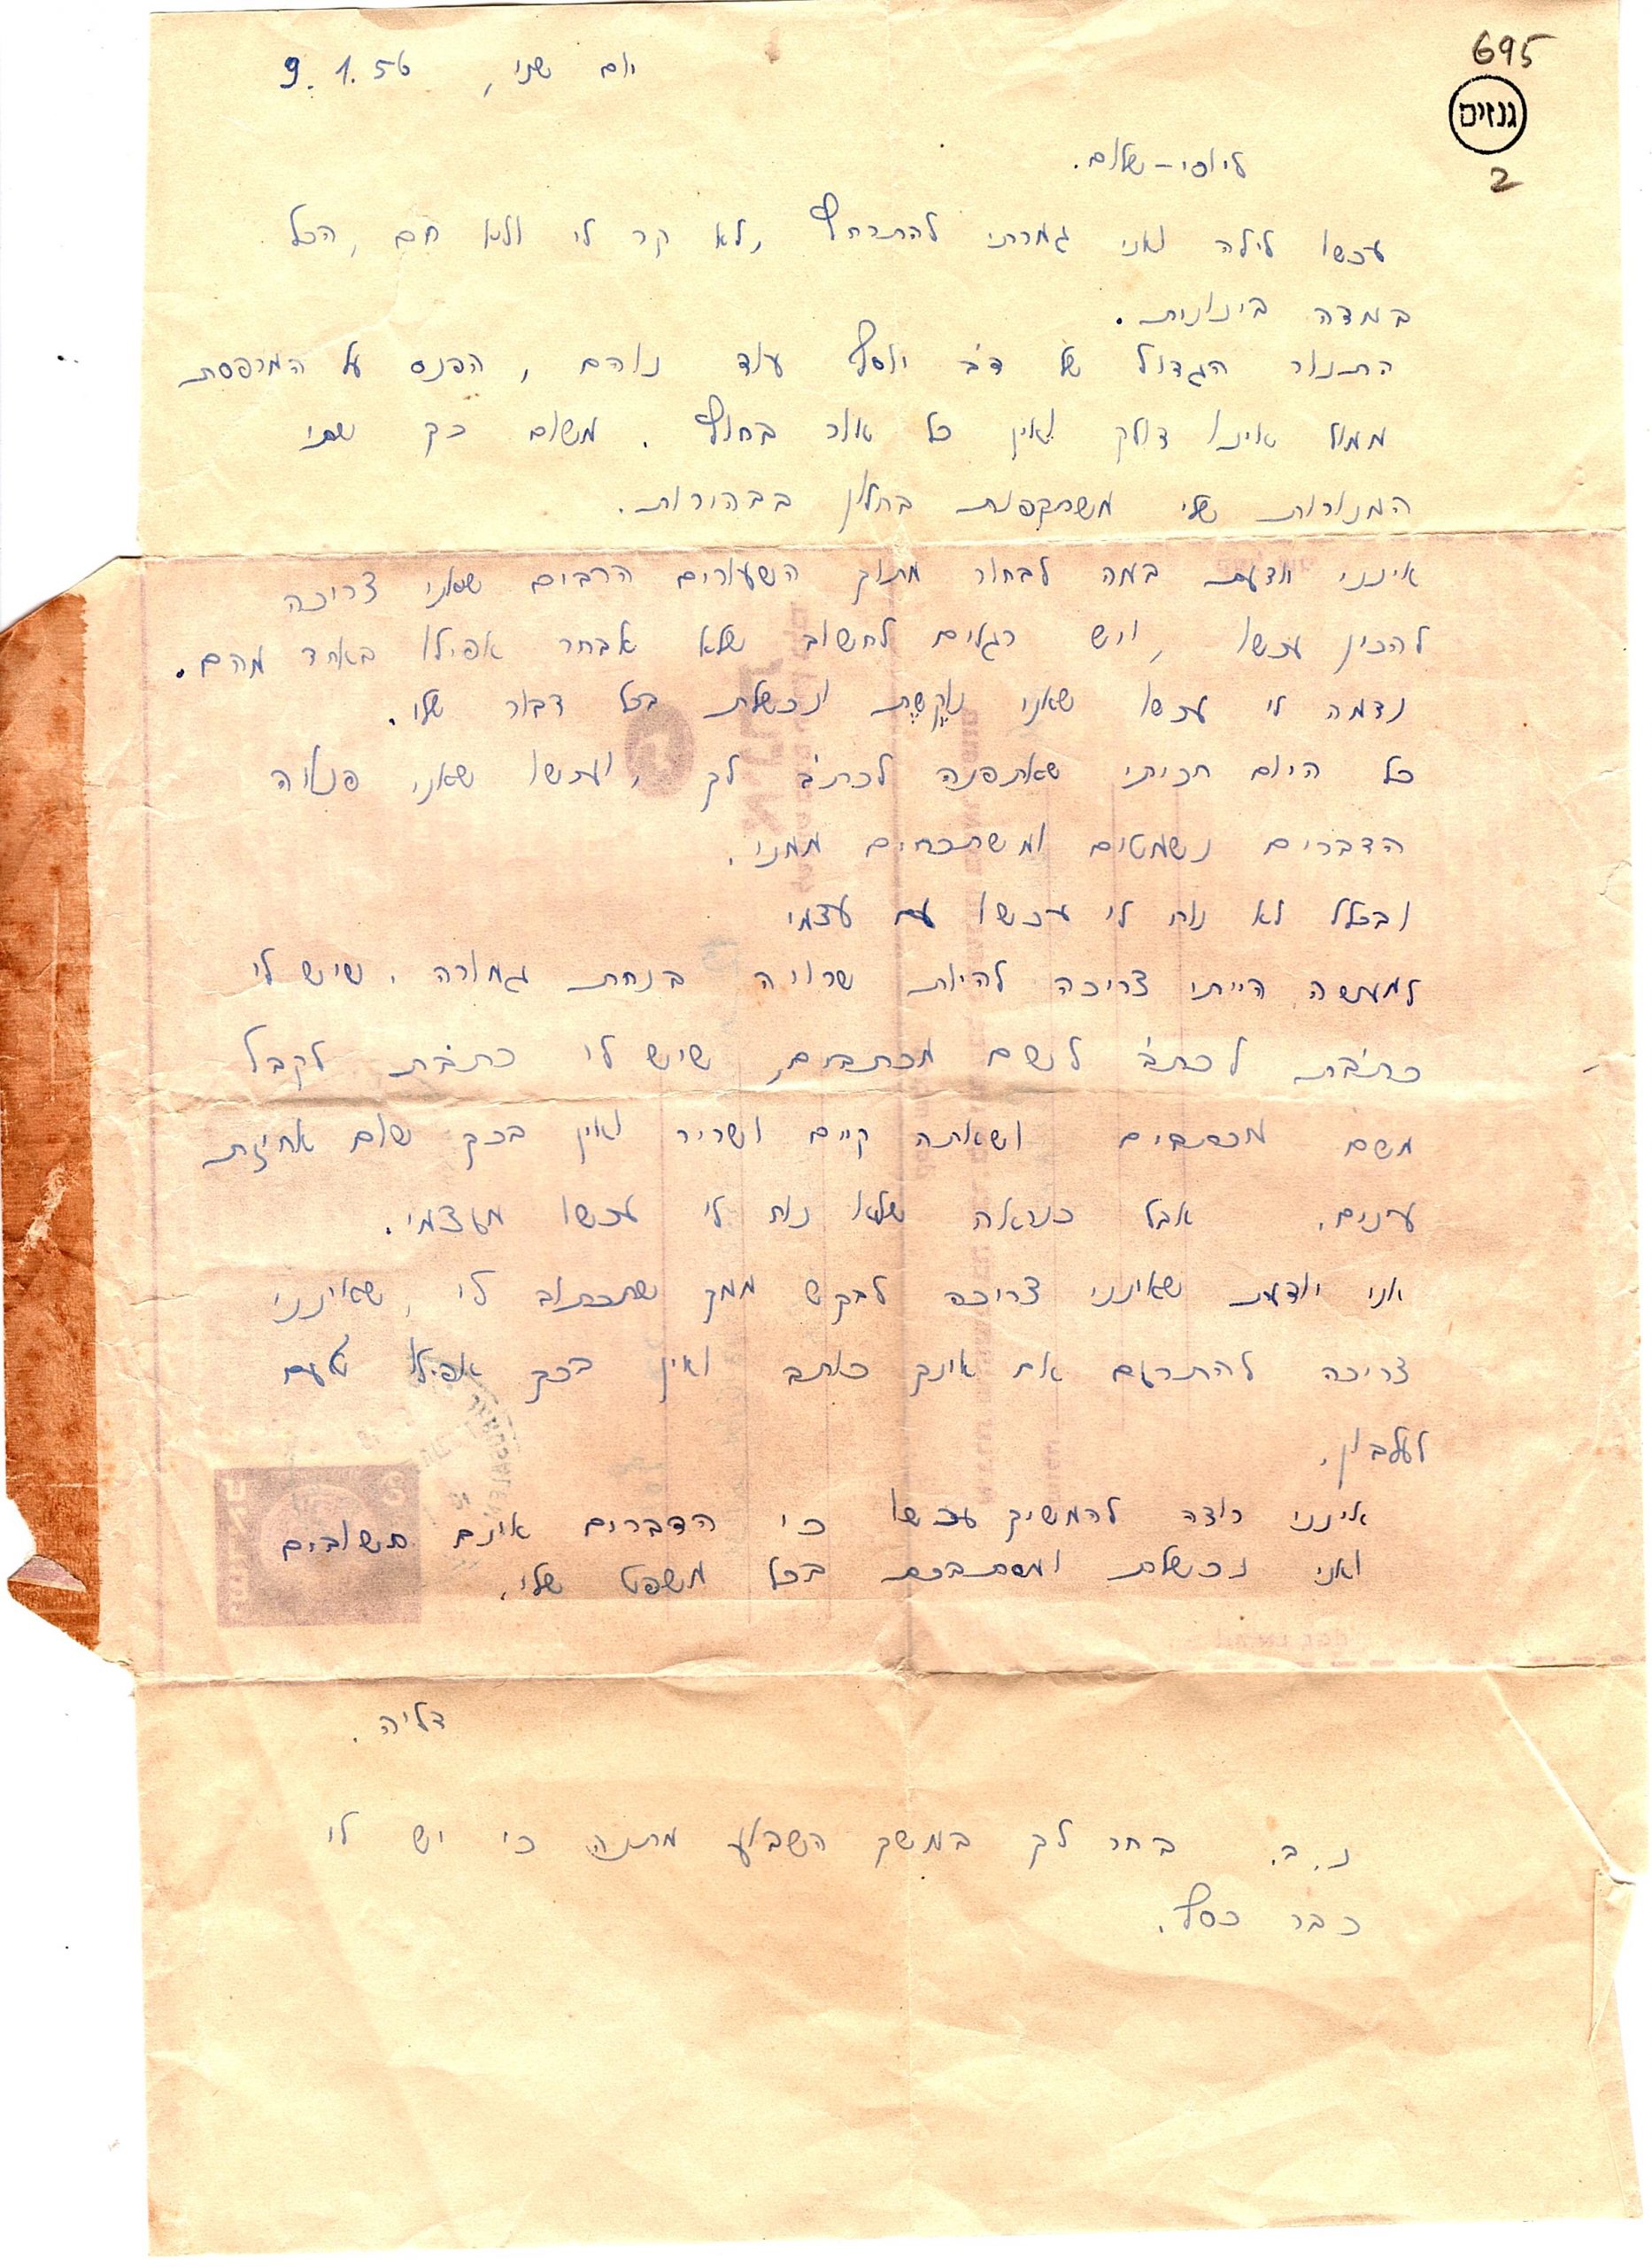 695
גנזים
2
יום שני, 9.1.56
ליוסי - שלום.
עכשו לילה ואני גמרתי להתרחץ, לא קר לי ולא חם, הכל
במדה בינונית.
התנור הגדול של דב יוסף עוד נוהם, הפנס על המרפסת
ממול אינו דולק ואין כל אור בחוץ. משום כך שתי
המנורות שלי משתקפות בחלון בבהירות.
אינני יודעת במה לבחור מתוך השעורים הרבים שאני צריכה
להכין עכשו, ויש רגלים לחשוב שלא אבחר אפילו באחד מהם.
נדמה לי עכשו שאני נוקשת ונכשלת בכל דבור שלי.
כל היום חכיתי שאתפנה לכתב לך, ועכשו שאני פנויה
הדברים נשמטים ומשתכחים ממני.
ובכלל לא נוח לי עכשו עם עצמי
למעשה הייתי צריכה להיות שרויה בנחת גמורה. שיש לי
כתבת לכתב לשם מכתבים, שיש לי כתבת לקבל
משם מכתבים ושאתה קיים ושריר ואין בכך שום אחיזת
עינים. אבל כנראה שלא נוח לי עכשו מעצמי.
אני יודעת שאינני צריכה לבקש ממך שתכתוב לי, שאינני
צריכה להתרגם אם אינך כותב ואין בכך אפילו טעם
לעלבון.
אינני רוצה להמשיך עכשו כי הדברים אינם חשובים
ואני נכשלת ומסתבכת בכל משפט שלי.
דליה.
נ.ב. בחר לך במשך השבוע מתנה כי יש לי
כבר כסף.